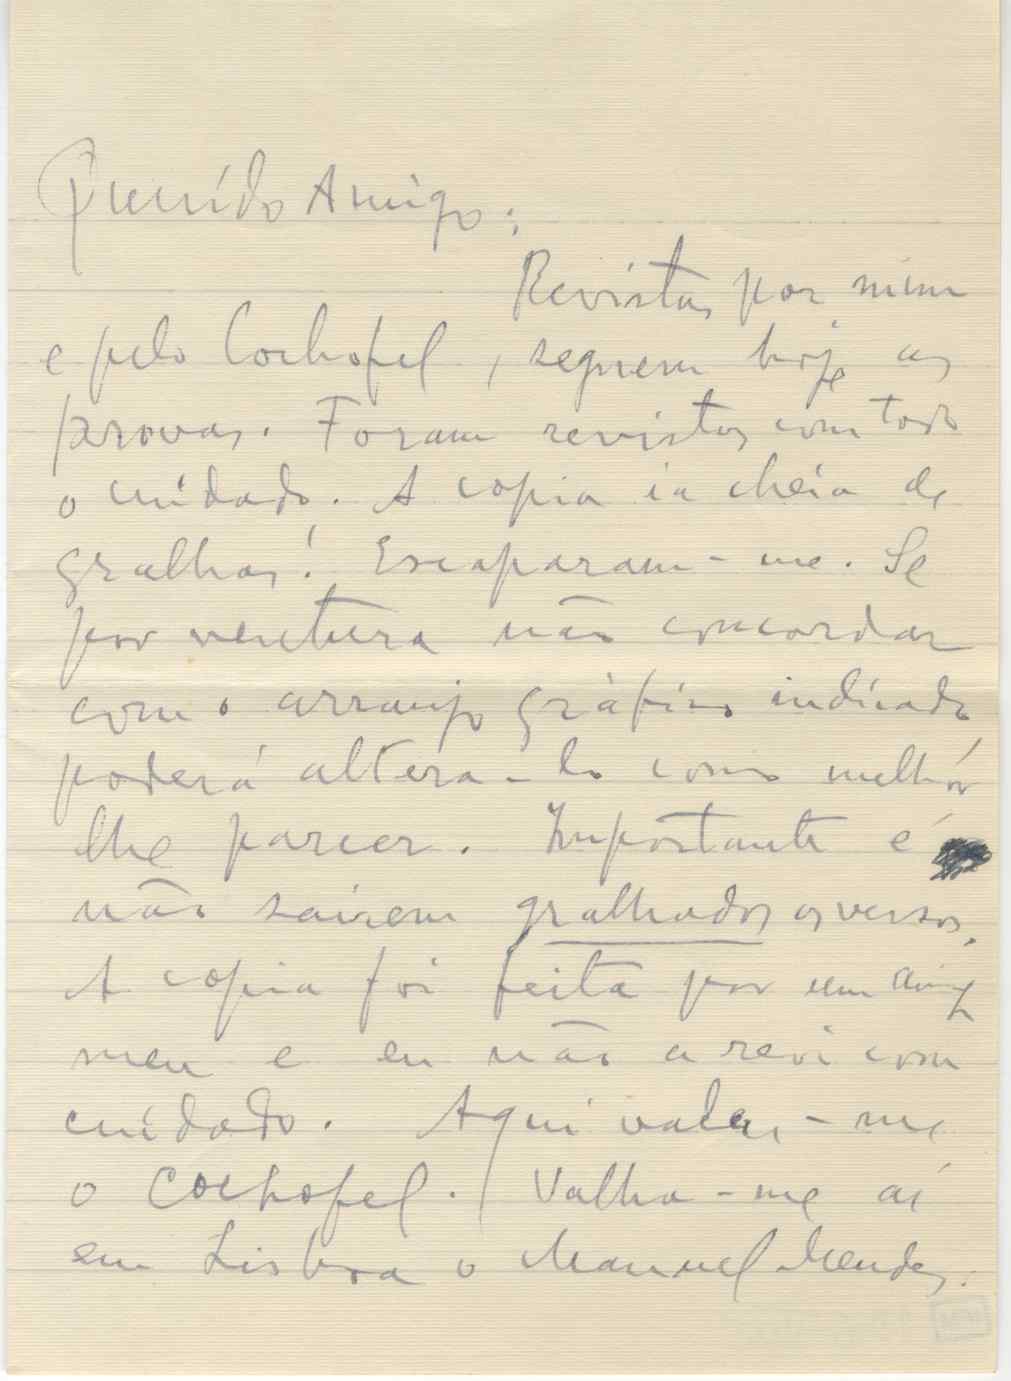 Querído Amigo:
Revistas por mim
e pelo Cochofel, seguem hoje as
provas. Foram revistas com todo
o cuidado. A copia ia cheia de
gralhas! Escaparam-me. Se
por ventura não concordar
com o arranjo gráfico indicado
poderá altera-lo como melhór
lhe parecer. Importante é
não sairem gralhados os versos.
A copia foi feita por um amigo
meu e eu não a revi com
cuidado. Aqui valeu-me
o Cochofel. Valha-me aí
em Lisboa o Manuel Mendes.